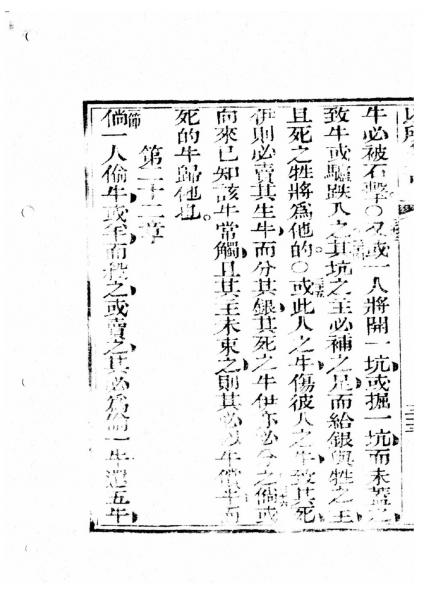 牛必被石擊○又或一人將開一坑或掘一坑而未蓋之
致牛或驢跌入之其坑之主必補之足而給銀與牲之主
且死之牲將為他的○或此人之牛傷彼人之牛致其死
伊則必賣其生牛而分其銀其死之牛伊亦必分之倘或
向來已知該牛常觸且其主未束之則其必以牛償牛而
死的牛歸他也
第二十二章
一節
倘一人偷牛或羊而殺之或賣之其必為偷一牛還五牛